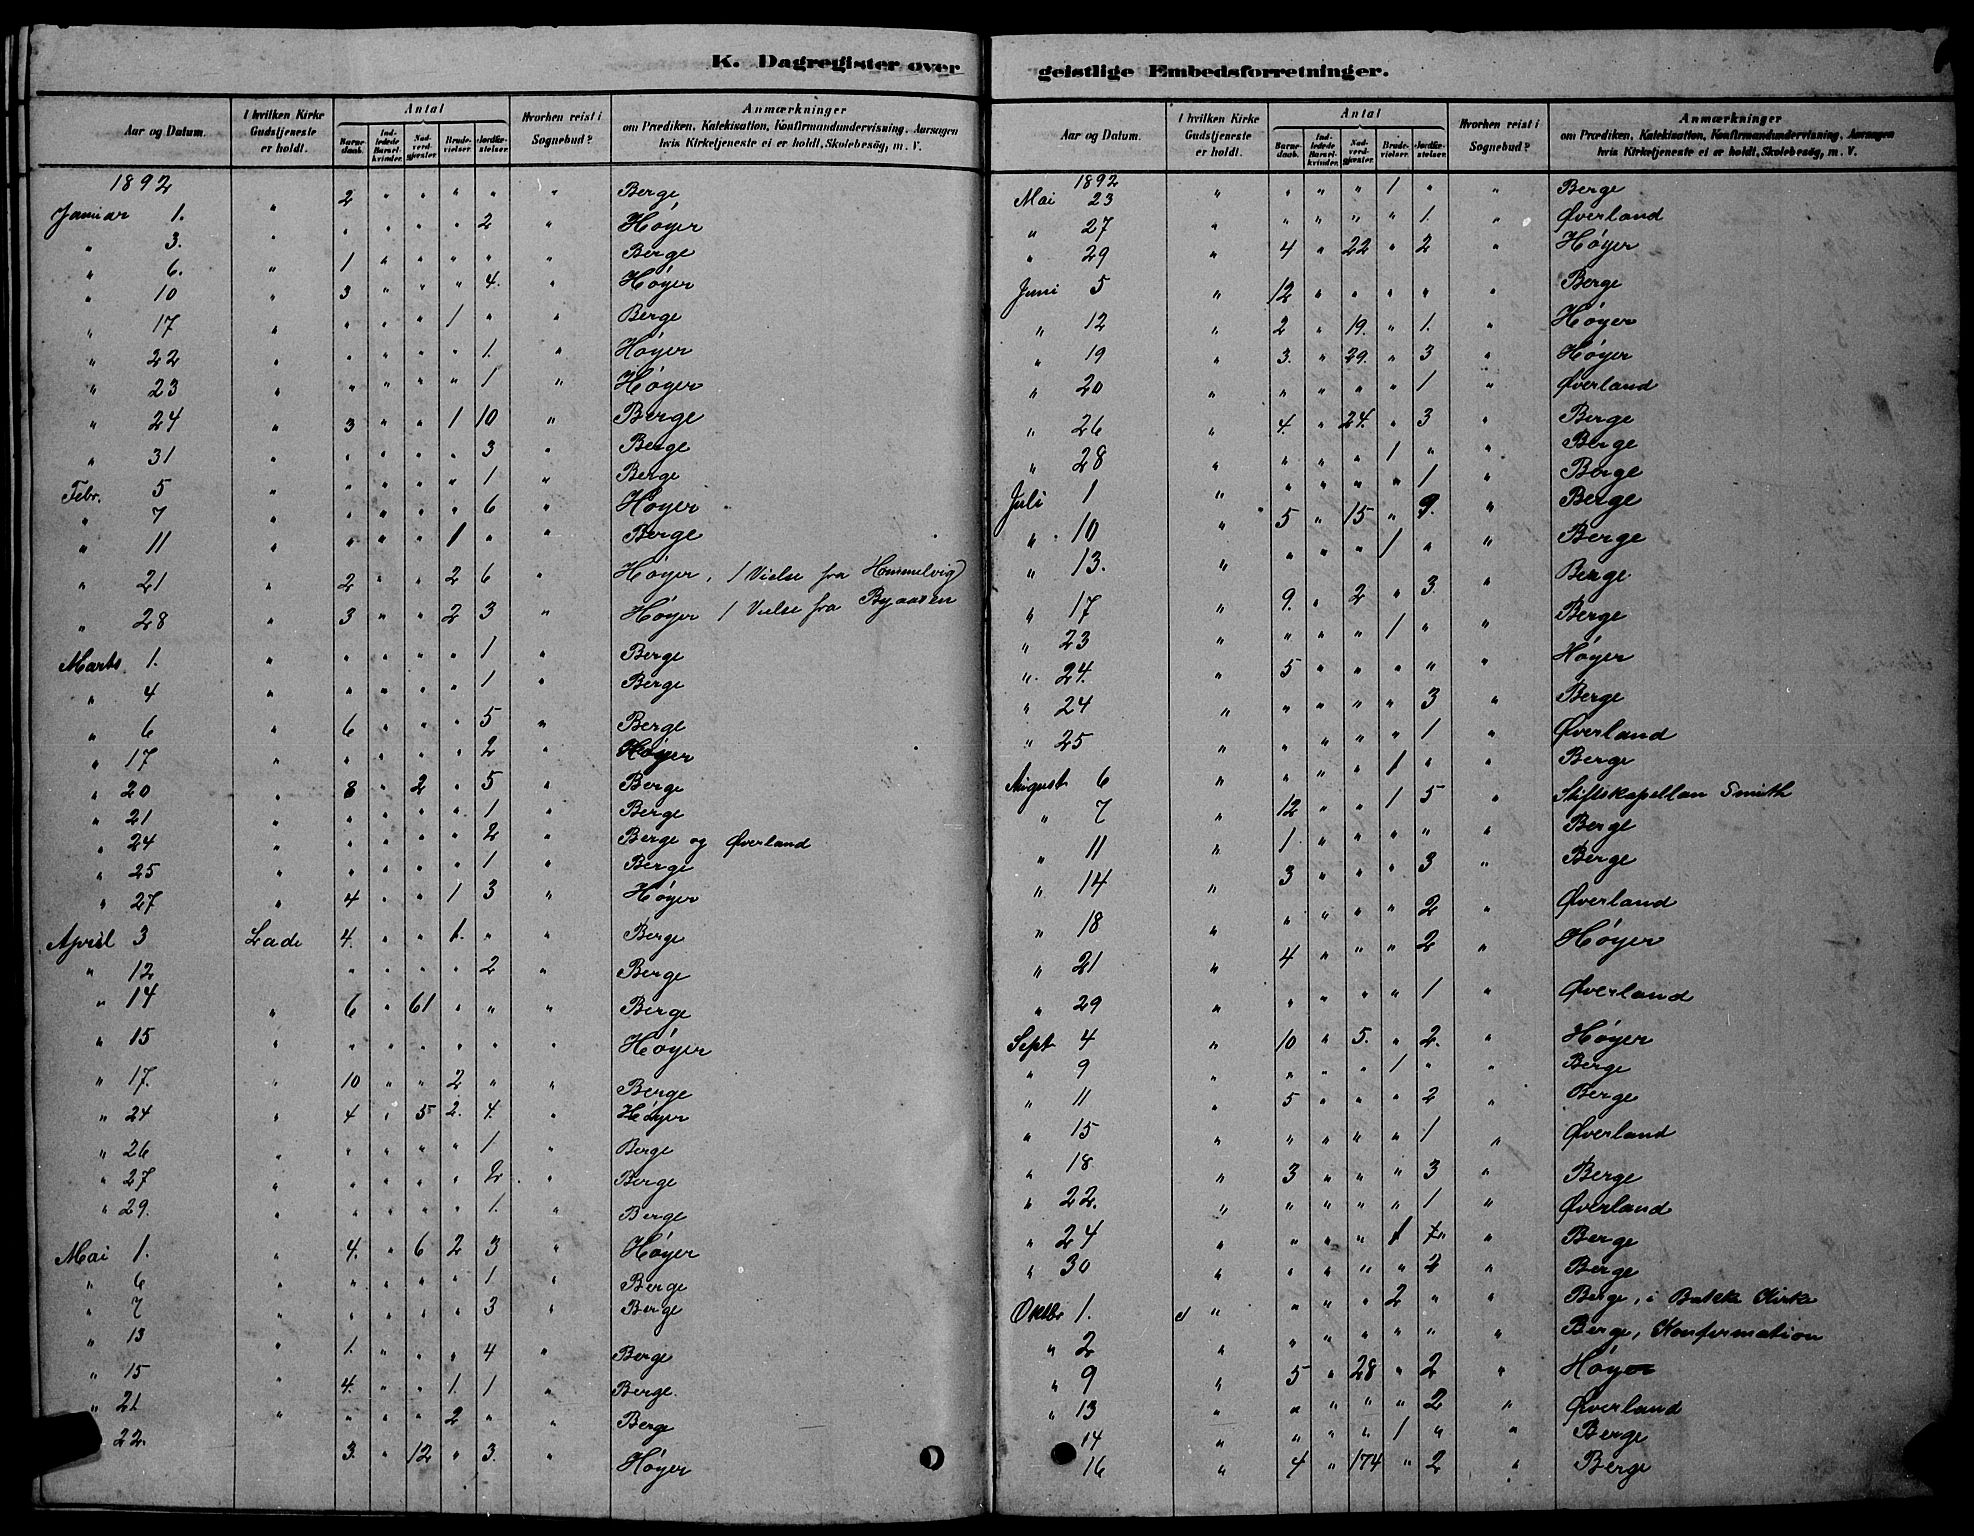 K. Dagregister over geistlige Embedsforretninger.
Aar og Datum.
I hvilken Kirke Gudstjeneste er holdt.
Antal
Barnedaab.
Indledede Barselkvinder.
Nadverdgjæster
Brudevielser
Jordfæstelser.
Hvorhen reist i Sognebud?
Anmærkninger
om Prædiken, Katekisation, Konfirmandundervisning, Aarsagen hvis Kirketjeneste ei er holdt, Skolebesög, m. V.
1892
Januar 1. " 2 " " " " " Berge
" 3. " " " " " 2 " Høyer
" 6. " 1 " " " " " Berge
" 10 " 3 " " " 4. " Høyer
" 17 " " " " 1 " " Berge
" 22 " " " " " 1. " Høyer
" 23 " " " " " 1 " Høyer
" 24 " 3 " " 1 10 " Berge
" 31 " " " " " 3 " Berge
Febr. 5 " " " " " 1 " Berge
" 7 " " " " " 6 " Høyer
" 11 " " " " 1 " " Berge
" 21 " 2 " " 2 6 " Høyer, 1 Vielse fra Hommelvig
" 28 " 3 " " 2 3 " Høyer 1 Vielse fra Byaasen
Marts 1. " " " " " 1 " Berge
" 4 " " " " " 1 " Berge
" 6 " 6 " " " 5 " Berge
" 17 " " " " " 2 " Høyer
" 20 " 8 " 2 " 5 " Berge
" 21 " " " " " 1 " Berge
" 24 " " " " " 2 " Berge og Øverland
" 25 " " " " " 1 " Berge
" 27 " 4 " " 1 3 " Høyer
April 3 Lade 4. " " 1. " " Berge
" 12 " " " " 2 " Berge
" 14 " 6 " 61 " " " Berge
" 15 " " " " " " " Høyer
" 17. " 10 " " 2 " " Berge
" 24 " 4 " 5 2. 4. " Høyer
" 26 " " " " " 1 " Berge
" 27 " " " " " 2 " Berge
" 29. " " " " " 1. " Berge
Mai 1. " 4. " 6 2 3 " Høyer
" 6 " " " " " 1 " Berge
" 7 " " " " " 3 " Berge
" 13 " 1. " " " 4 " Berge
" 15 " 4. " " 1. 1 " Berge.
" 21 " " " " 2 " " Berge
22. 3. " 12 " 3. " Høyer
Aar og Datum.
I hvilken Kirke Gudstjeneste er holdt.
Antal
Barnedaab.
Indledede Barselkvinder.
Nadverdgjæster
Brudevielser
Jordfæstelser.
Hvorhen reist i Sognebud?
Anmærkninger
om Prædiken, Katekisation, Konfirmandundervisning, Aarsagen hvis Kirketjeneste ei er holdt, Skolebesög, m. V.
1892
Mai 23 " " " " 1 " " Berge
" 27 " " " " " 1. " Øverland
" 29 " 4 " 22 " 2 " Høyer
Juni 5 " 12 " " " " " Berge
" 12 " 2 " 19. " 1. " Høyer
" 19 " 3. " 29. " 3 " Høyer
" 20 " " " " " 1 " Øverland
" 26 " 4. " 24. " 3 " Berge
" 28 " " " " 1 " " Berge
Juli 1 " " " " " 1 " Berge
" 10 " 5 " 15 " 9. " Berge
" 13. " " " " 1 " " Berge
" 17 " 9. " 2 " 3. " Berge
" 23 " " " " 1 " " Berge
" 24. " 5 " " " " " Høyer
" 24 " " " " " 3 " Berge
" 25 " " " " " 1 " Øverland
August 6 " " " " 1 " " Berge
" 7 " 12 " " 1 5 " Stiftskapellan Smith
" 11 " 1 " " " " " Berge
" 14 " 3 " " " 3 " Berge
" 18 " " " " " 2 " Øverland
" 21 " 4 " " " 2 " Høyer
" 29 " " " " " 1 " Øverland
Sept 4 " 10 " 5. " 2. " Høyer
" 9 " " " " 1 " " Berge
" 11 " 5 " " " 2 " Berge
" 15 " " " " " 1 " Øverland
" 18 " 3 " " " 3 " Berge
" 22. " " " " " 1 " Øverland
" 24 " " " " 1 " " Berge
" 30 " " " " " 2 " Berge
Oktbr 1. " " " " 2 " " Berge, i Bakke Kirke
" 2 " " " " " " " Berge, Konfirmation
" 9 " 5 " 28 " 2 " Høyer
" 13 " " " " " 2 " Øverland
14 " " " " 1 " " Berge
16 " 4 " 174 " 2 " Berge